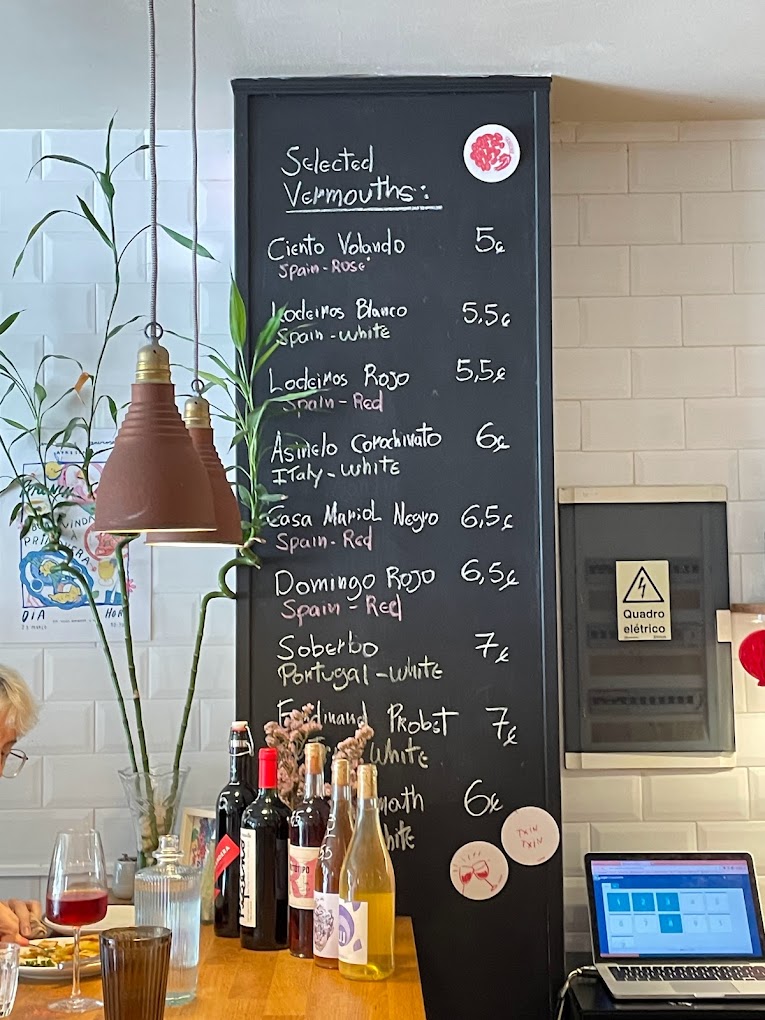 Selected
Vermouths:
Ciento Volando 5€
Spain - Rosé
Lodeiros Blanco 5,5€
Spain - white
Lodeiros Rojo 5,5€
Spain - Red
6€
Italy - white
Casa Mariol Negro 6,5€
Spain - Red
Domingo Rojo 6,5€
Spain - Red
Soberbo 7€
Portugal - white
Ferdinand Probst 7€
White
math 6€
TXIN
TXIN
Quadro
elétrico
PRIMAVERA
DIA